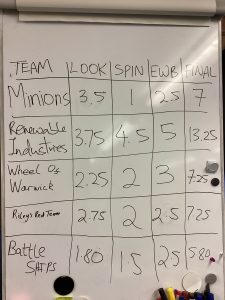 TEAM LOOK SPIN EWB FINAL
Minions 3.5 1 2.5 7
Renewable
Industries 3.75 4.5 5 13.25
Wheel Of
Warwick 2.25 2 3 7.25
Riley's Red Team 2.75 2 2.5 7.25
Battle
SHIPS 1.80 1.5 2.5 5.80